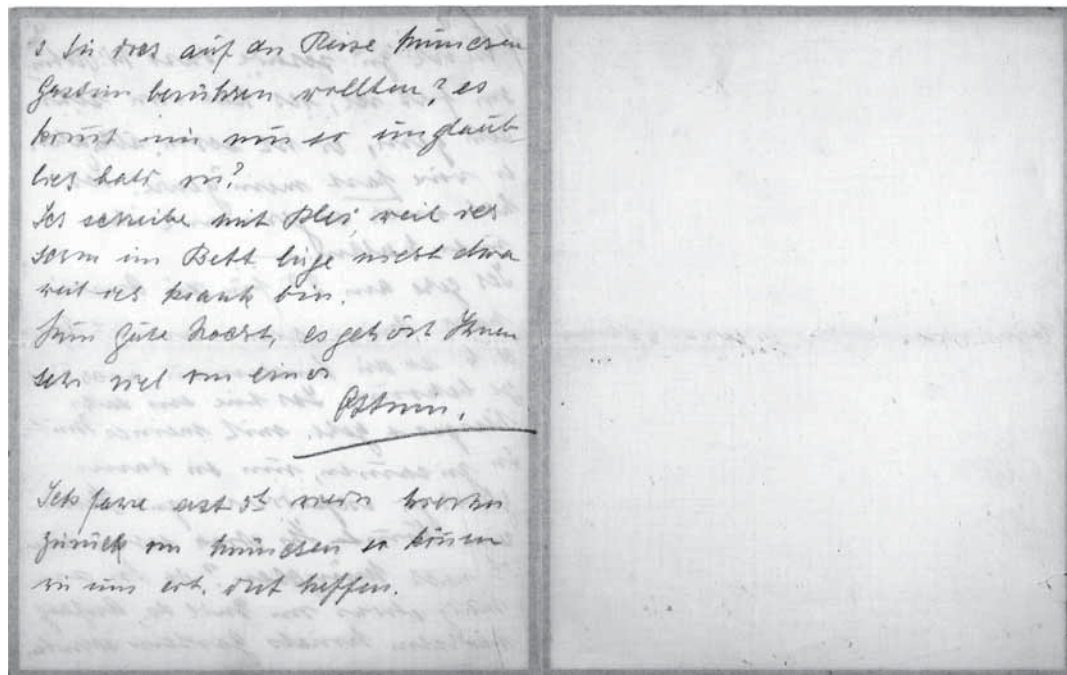 Sie dies auf der Reise München
Gastein berühren wollten? es
kommt mir nun so unglaub-
lich bald vor?
Ich schreibe mit Blei, weil ich
schon im Bett liege nicht etwa
weil ich krank bin.
Nun gute Nacht, es gehört Ihnen
sehr viel von einer

Ich fahre erst 5t wieder
zurück von München so können
wir uns evt. dort treffen.